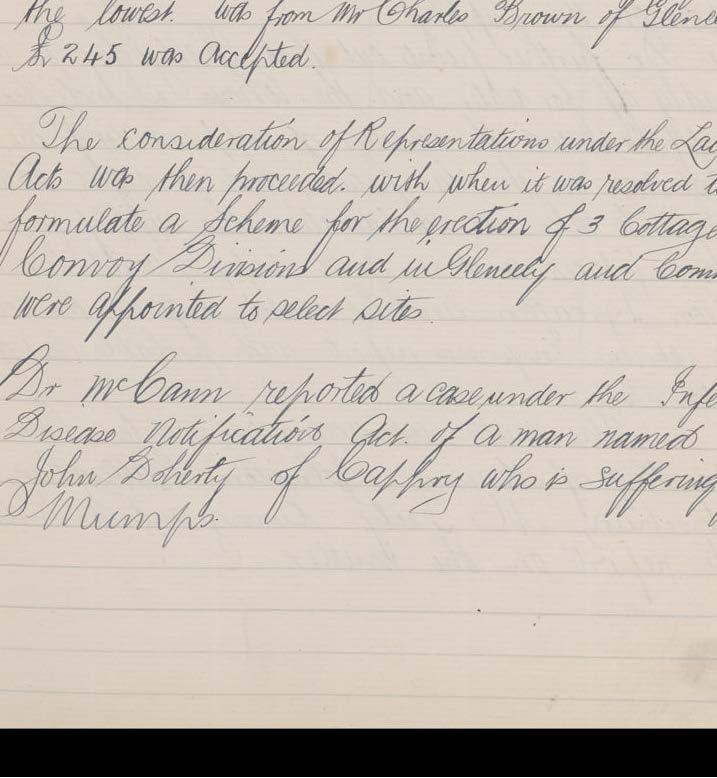 the lowest. was from Mr Charles Brown of Glene
£245 was accepted.
The consideration of Representations under the La
Acts was then proceeded. with when it was resolved t
formulate a Scheme for the erection of 3 Cottage
Convoy Divisions and in Gleneely and Com
were appointed to select sites.
Dr McCann reported a case under the Infe
Disease Notification Act. of a man named
John Doherty of Cappry who is suffering
Mumps.